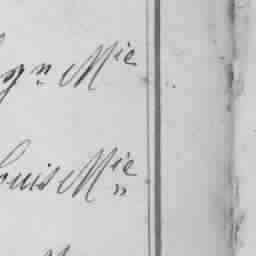 gn Mie
ouis Mie